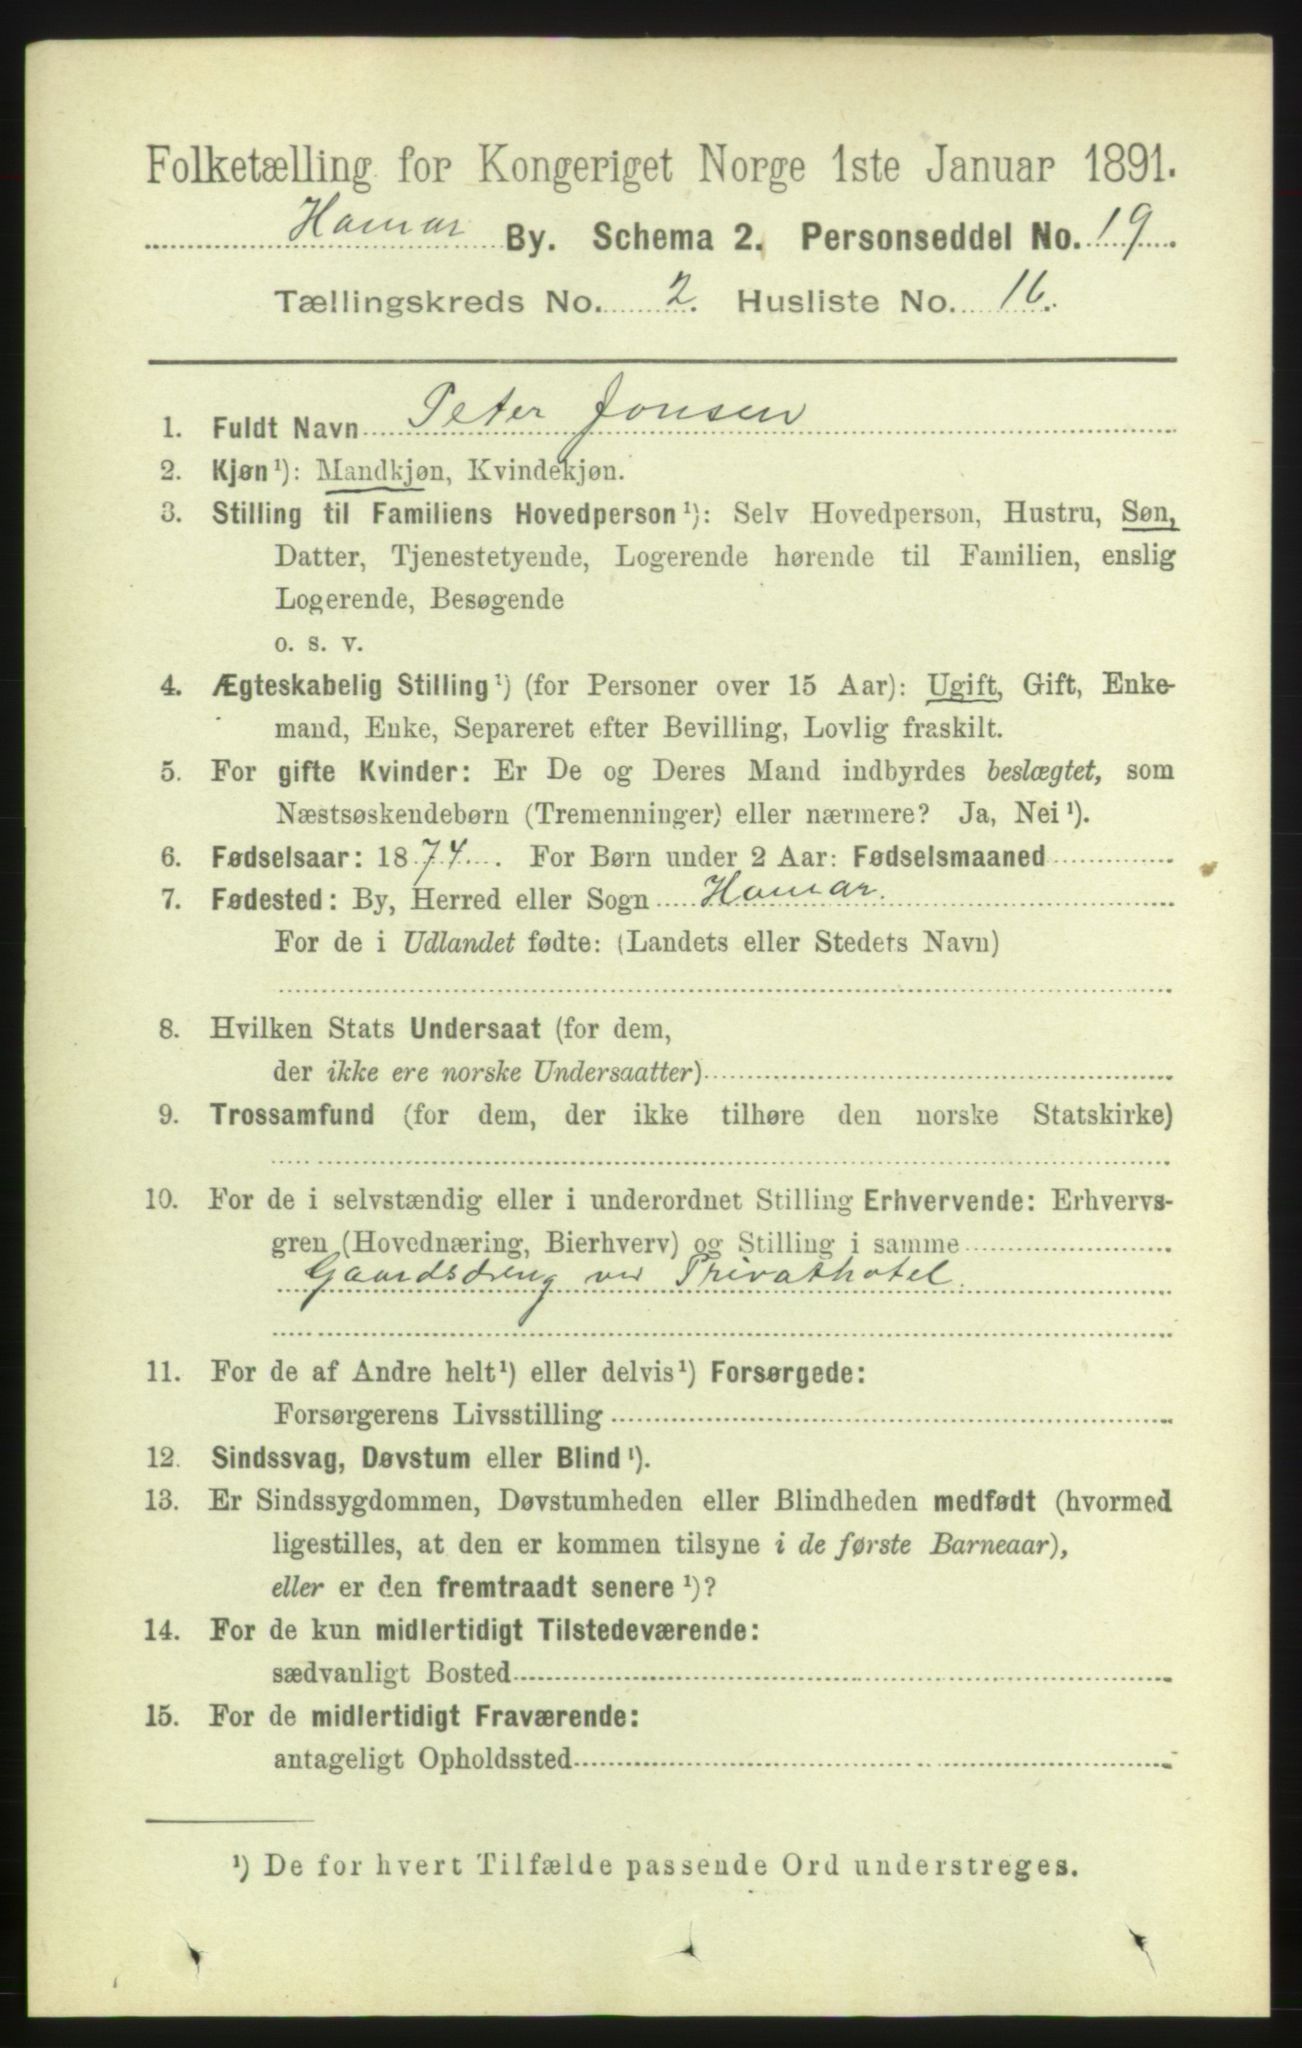 Folketælling for Kongeriget Norge 1ste Januar 1891.
Hamar By. Schema 2. Personseddel No. 19.
Tællingskreds No. 2. Husliste No. 16.
1. Fuldt Navn Peter Jonsen
2. Kjøn¹): Mandkjøn, Kvindekjøn.
3. Stilling til Familiens Hovedperson¹): Selv Hovedperson, Hustru, Søn,
Datter, Tjenestetyende, Logerende hørende til Familien, enslig
Logerende, Besøgende
o. s. v.
4. Ægteskabelig Stilling¹) (for Personer over 15 Aar): Ugift, Gift, Enke-
mand, Enke, Separeret efter Bevilling, Lovlig fraskilt.
5. For gifte Kvinder: Er De og Deres Mand indbyrdes beslægtet, som
Næstsøskendebørn (Tremenninger) eller nærmere? Ja, Nei¹).
6. Fødselsaar: 1874. For Børn under 2 Aar: Fødselsmaaned
7. Fødested: By, Herred eller Sogn Hamar.
For de i Udlandet fødte: (Landets eller Stedets Navn)
8. Hvilken Stats Undersaat (for dem,
der ikke ere norske Undersaatter)
9. Trossamfund (for dem, der ikke tilhøre den norske Statskirke)
10. For de i selvstændig eller i underordnet Stilling Erhvervende: Erhvervs-
gren (Hovednæring, Bierhverv) og Stilling i samme
Gaardsdreng ved Privathotel.
11. For de af Andre helt¹) eller delvis¹) Forsørgede:
Forsørgerens Livsstilling
12. Sindssvag, Døvstum eller Blind¹).
13. Er Sindssygdommen, Døvstumheden eller Blindheden medfødt (hvormed
ligestilles, at den er kommen tilsyne i de første Barneaar),
eller er den fremtraadt senere¹)?
14. For de kun midlertidigt Tilstedeværende:
sædvanligt Bosted
15. For de midlertidigt Fraværende:
antageligt Opholdssted
¹) De for hvert Tilfælde passende Ord understreges.